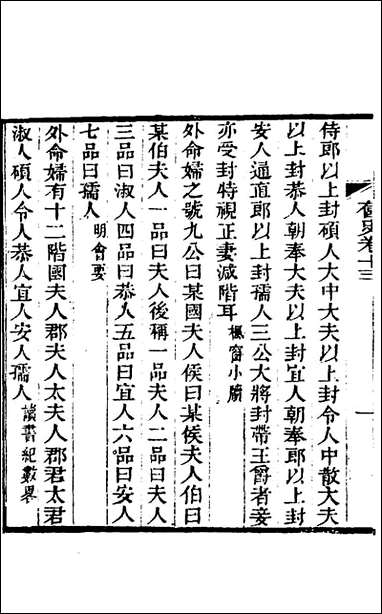 奩史卷十三 一
侍郎以上封碩人大中大夫以上封令人中散大夫
以上封恭人朝奉大夫以上封宜人朝奉郎以上封
安人通直郎以上封孺人三公大將封帶王爵者妾
亦受封特視正妻減階耳楓窗小牘
外命婦之號九公曰某國夫人侯曰某侯夫人伯曰
某伯夫人一品曰夫人後稱一品夫人二品曰夫人
三品曰淑人四品曰恭人五品曰宜人六品曰安人
七品曰孺人明會要
外命婦有十二階國夫人郡夫人太夫人郡君太君
淑人碩人令人恭人宜人安人孺人讀書紀數畧